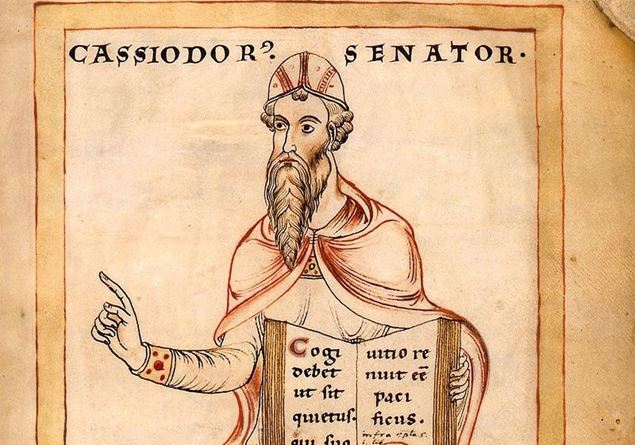 CASSIODORꝰ. SENATOR.
Cogi
debet
ut sit
quietus.
qui suo
uitio re
nuit eē
paci
ficus.
infra eplas